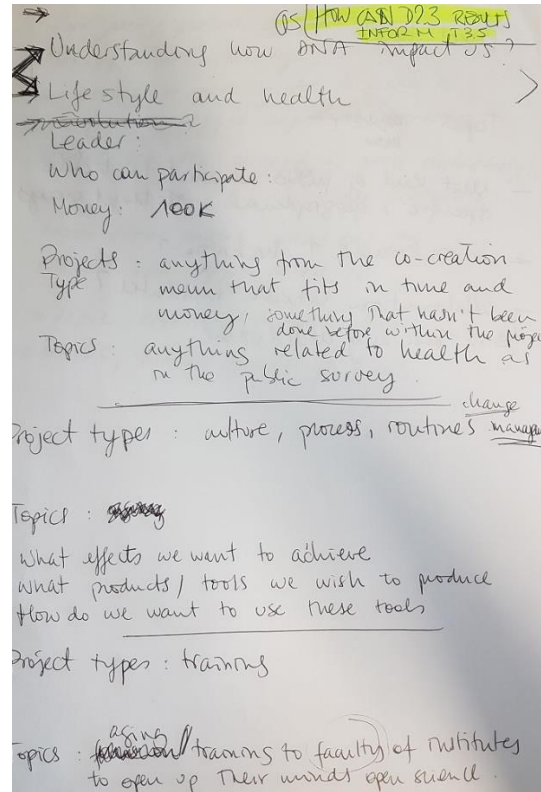 Q5/HOW CAN D2.3 RESULTS
INFORM T3.5
Understanding how DNA impact us?
Life style and health
Leader:
Who can participate:
Money: 100K
Projects : anything from the co-creation
Type menu that fits in time and
money, something that hasn't been
done before within the project
Topics : anything related to health as
in the public survey.
change
Project types : culture, process, routines manage
Topics :
What effects we want to achieve
What products/tools we wish to produce
How do we want to use these tools
Project types : training
aging
Topics : / training to faculty of institutes
to open up their minds open science.